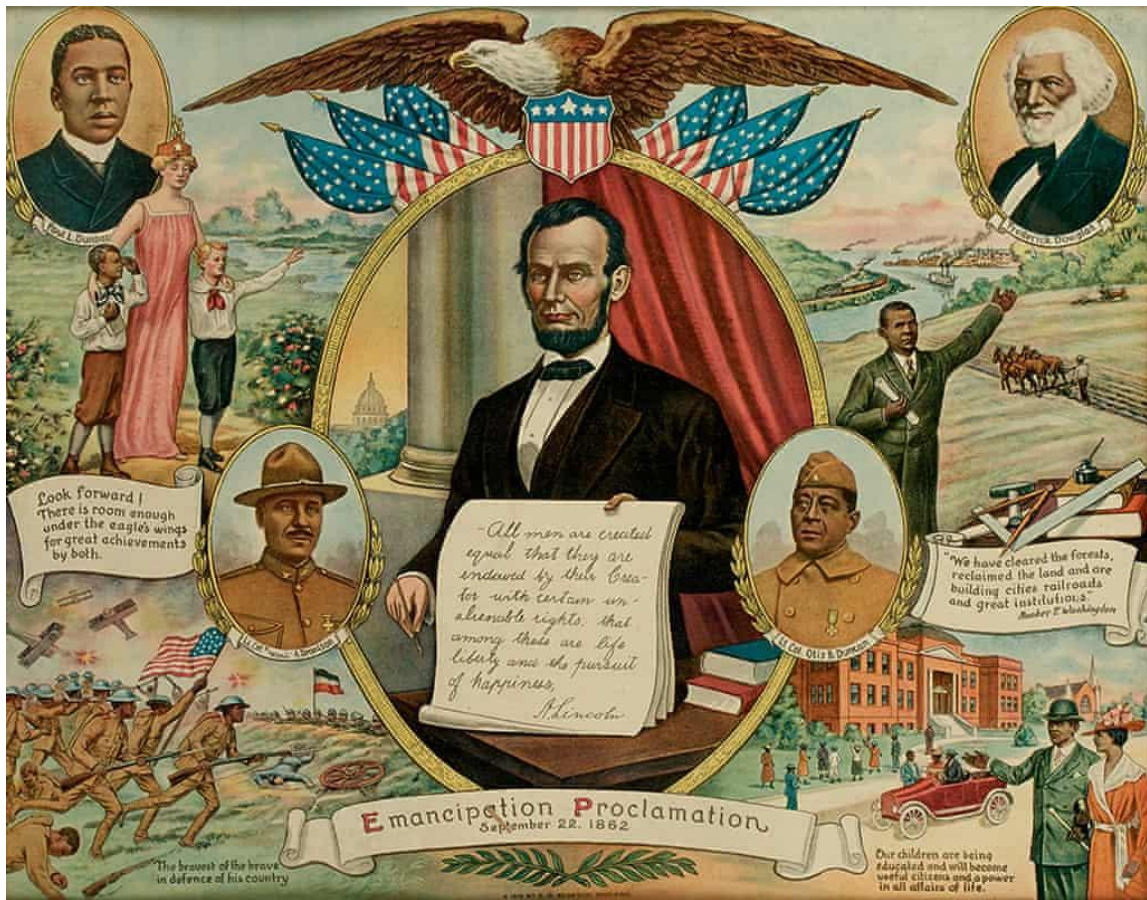 Paul L. Dunbar
Frederick Douglas
Look forward!
There is room enough
under the eagle's wings
for great achievements
by both.
Lt. Col.
Lt. Col. Otis B. Duncan
-All men are created
equal that they are
endowed by their Crea-
tor with certain un-
alienable rights, that
among these are life
liberty and the pursuit
of happiness,
A. Lincoln
"We have cleared the forests,
reclaimed the land and are
building cities railroads
and great institutions."
Booker T. Washington
Emancipation Proclamation
September 22. 1862
The bravest of the brave
in defence of his country
Our children are being
educated and will become
useful citizens and a power
in all affairs of life.